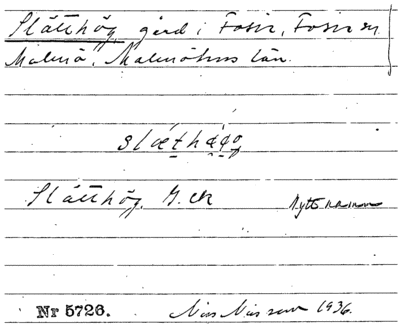 Slätthög, gård i Fosie, Fosie sn
Malmö, Malmöhus län.
Slätthög. G. ek
Nytt namn
Nr 5726. Nils Nilsson 1936.